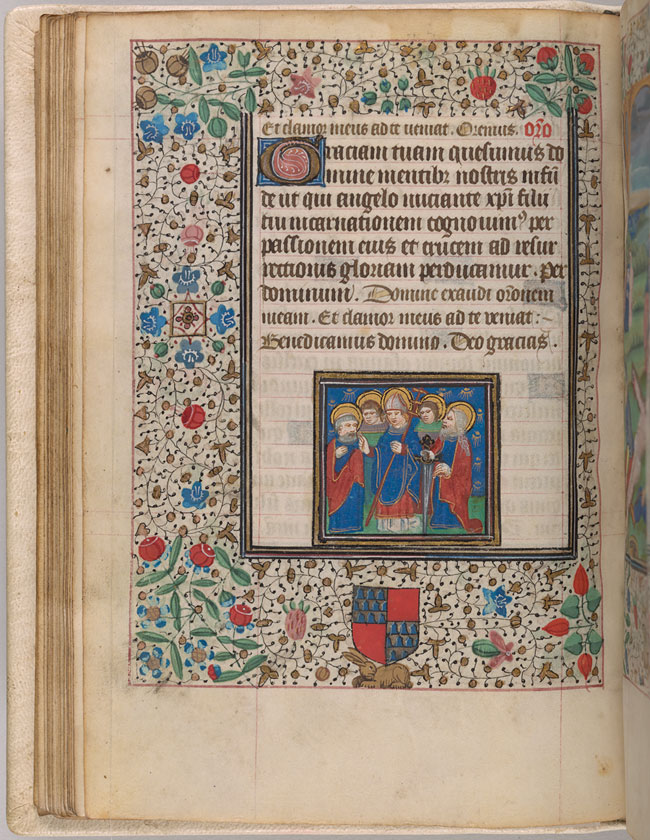 Et clamor meus ad te veniat. Oremus. oro
Graciam tuam quesumus do
mine mentibz nostris infun
de ut qui angelo nunciante xpi filii
tui incarnationem cognouimꝰ per
passionem eius et crucem ad resur
rectionis gloriam perducamur. Per
dominum. Domine exaudi oronem
meam. Et clamor meus ad te veniat:
Benedicamus domino. Deo gracias.